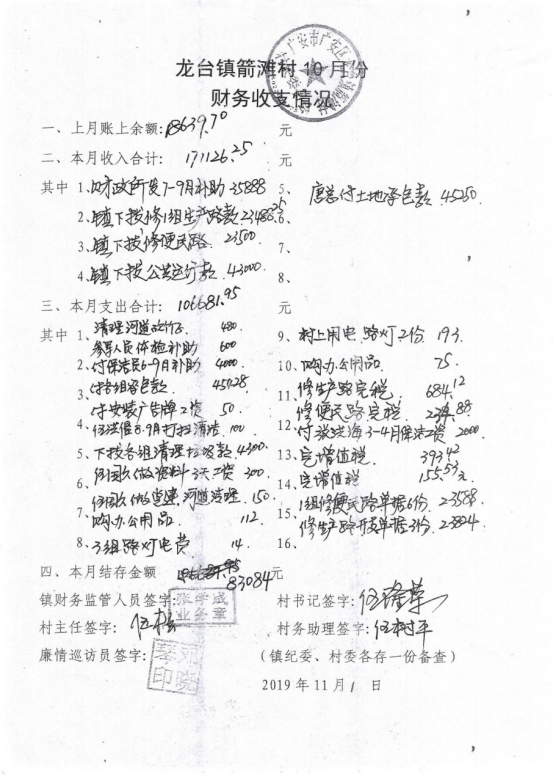 龙台镇箭滩村10月份
财务收支情况
一、上月账上余额:18639.70 元
二、本月收入合计: 171126.25 元
其中 1、财政所发7-9月补助 35888 5、唐总付土地承包款 45250
2、镇下拨修1组生产路款 23488.25 6、
3、镇下拨修便民路 23500 7、
4、镇下拨公共运行款 43000 8、
三、本月支出合计: 106681.95 元
其中 1、清理河道 480 9、村上用电 路灯2份 193
参军人员体检补助 600
2、付保洁员6-9月补助 4000 10、购办公用品 75
3、付各组承包款 45028 11、修生产路完税 684.12
付安装广告牌工资 50 修便民路完税 .88
4、 8.9月打扫清洁 100 12、付 3-4月保洁工资 2000
5、下拨各组清理垃圾款 4300 13、完增值税 393.42
6、 做资料3天工资 300 14、完增值税 155.53
做党建,河道清理 150
7、购办公用品 112 15、1组修便民路单据6份 23588
8、3组路灯电费 14 修生产路开支单据3份 23804
16、
四、本月结存金额 83084元
镇财务监管人员签字: 张学成 业务章 村书记签字:
村主任签字: 村务助理签字:伍树平
廉情巡访员签字: (镇纪委、村委各存一份备查)
2019 年 11 月 1 日